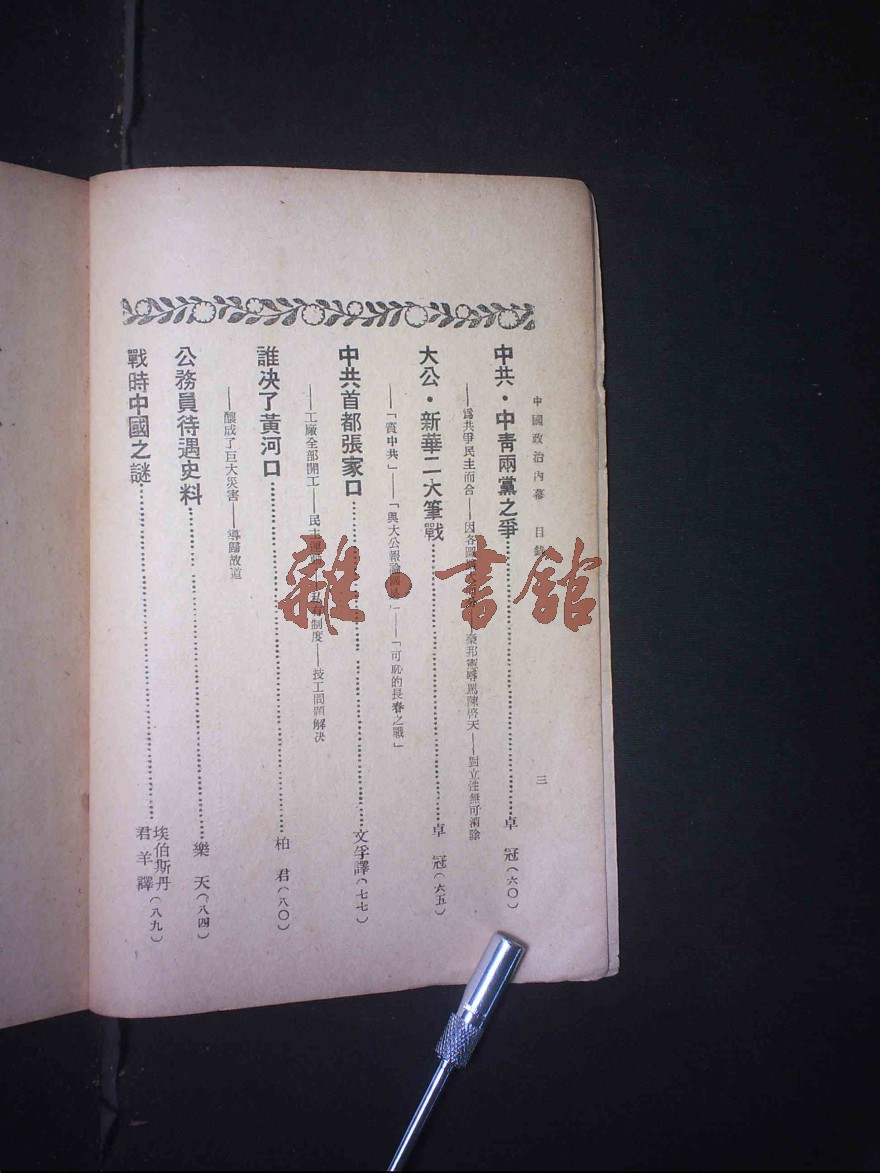 中國政治內幕 目錄 三
中共・中靑兩黨之爭 卓冠(六〇)
——爲共爭民主而合——因各 秦邦憲辱駡陳啓天——對立性無可消除
大公・新華二大筆戰 卓冠(六五)
——「責中共」——「與大公報論國是」——「可恥的長春之戰」
中共首都張家口 文孚譯(七七)
——工廠全部開工——民主 私有制度——技工問題解決
誰决了黃河口 柏君(八〇)
——釀成了巨大災害——導歸故道
公務員待遇史料 樂天(八四)
戰時中國之謎 埃伯斯丹 君羊譯(八九)
雜・書館